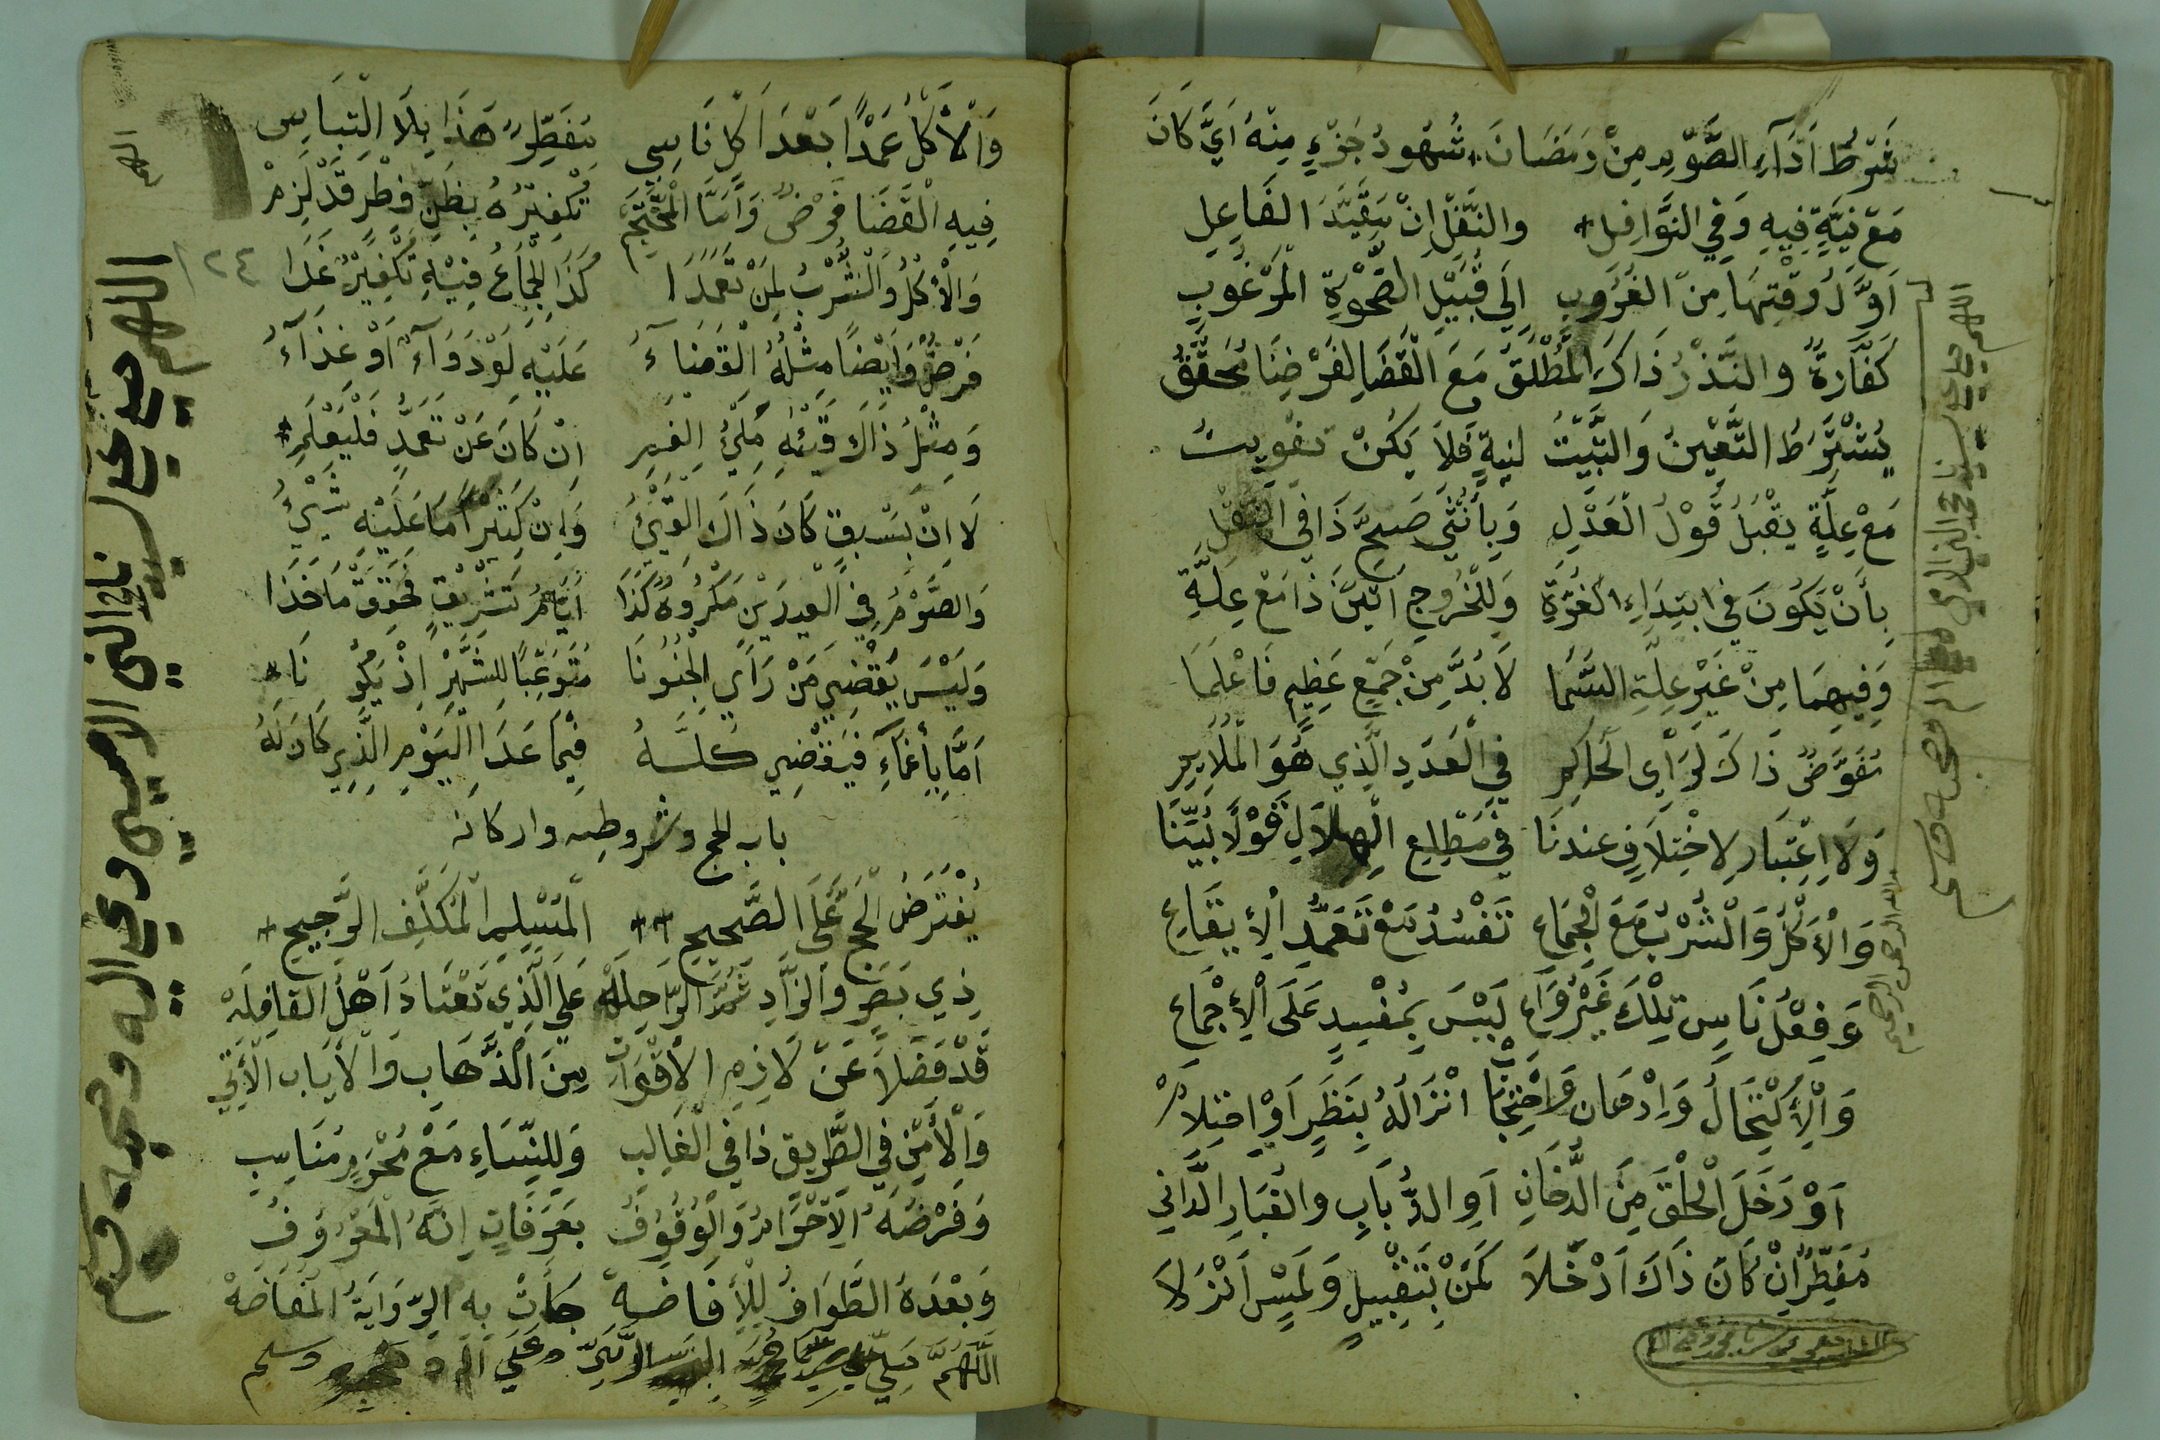 شَرْطُ اَدَآءِ الصَّوْمِ مِنْ رَمَضَانَ شُهُودُ جُزْءٍ مِنْهُ اَيَّ كَانَ
مَعْ نِيَّةٍ فِيهِ وَفِي النَّوَافِلِ والنَّفْلِ اِنْ يُقَيَّدَ الفَاعِلِ
اَوَّلُ وَقْتِهَا مِنَ الغُرُوبِ اِلَى قُبَيْلِ الضَّحْوَةِ الْمَرْغُوبِ
كَفَّارَةٌ والنَّذْرُ ذَاكَ الْمُطْلَقُ مَعَ الْقَضَا لِفَرْضِنَا مُحَقَّقُ
يُشْتَرَطُ التَّعْيِينُ وَالتَّبْيِيْتُ لنِيَةٍ فَلَا يَكُنْ تَفْوِيتُ
مَعْ عِلَّةٍ يُقْبَلُ قَوْلُ الْعَدْلِ وَبِأُنْثَى صَحَّ ذَا فِي النَّقْلِ
بِأَنْ يَكُونَ فِي ابْتِدَاءِ الغُرَّةِ وَلِلْخُرُوجِ اثْنَيْنِ ذَا مَعْ عِلَّةِ
وَفِيهِمَا مِنْ غَيْرِ عِلَّةِ السَّمَا لَا بُدَّ مِنْ جَمْعٍ عَظِيمٍ فَاعْلَمَا
مُفَوَّضٌ ذَاكَ لِرَأْيِ الْحَاكِمِ فِي الْعَدَدِ الَّذِي هُوَ الْمُلَايِمِ
وَلَا اِعْتِبَارِ لِاخْتِلَافٍ عندَنَا فِي مَطْلِعِ الْهِلَالِ قَوْلًا بُيِّنَا
وَالْأَكْلُ وَالْشُرْبُ مَعَ الْجِمَاعِ تَفْسُدُ مَعْ تَعَمُّدِ الْإِيقَاعِ
وَفِعْلُ نَاسٍ تِلْكَ غَيْرُ وَاعِ لَيْسَ بِمُفْسِدٍ عَلَى الْإِجْمَاعِ
وَالْإِكْتِحَالُ وَاِدْهَان وَاحْتِجَامْ اِنْزَالُهُ بِنَظَرٍ اَوْ احْتِلَامْ
اَوْ دَخَلَ الْحَلْقَ مِنَ الدُّخَانِ اَوِ الذُّبَابِ والغُبَارِ الدَّانِي
مُفَطِّرٌ اِنْ كَانَ ذَاكَ اَدْخَلَا كَمَنْ بِتَقْبِيلٍ وَلَمْسٍ اَنْزَلَا
وَالْأَكْلُ عَمْدًا بَعْدَ اَكْلِ نَاسِي مُفَطِّرٌ هَذَا بِلَا الْتِبَاسِ
فِيهِ الْقَضَا فَرْضٌ وَاَمَّا الْمُحْتَجِمْ تَكْفِيرُهُ بِظَنِّ فِطْرٍ قَدْ لَزِمْ
وَالْأَكْلُ وَالْشُّرْبُ لِمَنْ تَعَمَّدَا كَذَا الْجِمَاعُ فِيْهِ تَكْفِيْرٌ غَدَا
١٢٤
فَرْضٌ وَاَيْضًا مِثْلُهُ الْقَضَاءُ عَلَيْهِ لَوْ دَوَآءٌ اَوْ غِذَآءُ
وَمِثْلُ ذَاكَ قَيْئُهِ مَلْئُ الفَمِ اِنْ كَانَ عَنْ تَعَمُّدٍ فَلْيُعْلَمِ
لَا اِنْ يَسْبِق كَانَ ذَاكَ القَيْئُ وَاِنْ كَثِيْرًا مَا عَلَيْهِ شَيْئُ
وَالصَّوْمُ فِي الْعِيدَيْنِ مَكْرُوهٌ كَذَا اَيَّامُ تَشْرِيقٍ فَحَقِّقْ مَاخَذَا
وَلَيْسَ يَقْضِي مَنْ رَأَي الْجُنُونَا مُسْتَوْعِبًا لِلشَّهْرِ اِذْ يَكُونَا
اَمَّا بِأغْمَاءٍ فَيَقْضِي كُلَّهُ فِيْمَا عَدَا الْيَوْمِ الَّذِي كَانَ لَهُ
باب للحج وشروطه واركانه
يُفْتَرَضُ الْحَجُّ عَلَى الصَّحِيحِ الْمُسْلِمِ الْمُكَلَّفِ الرَّجِيحِ
ذِي بَصَرٍ والزَّادِ ثُمَّ الرَّاحِلَهْ عَلَي الَّذِي تَعْتَادُ اَهْلُ القَافِلَهْ
قَدْ فَضَلَا عَنْ لَازِمِ الْأَقْوَاتِ بينَ الْذَّهَابِ وَالْأَيَابِ الْأَتِي
وَالْأَمْنِ فِي الطَّرِيقِ ذَا فِي الْغَالِبِ وَلِلنِّسَاءِ مَعْ مُحْرِمٍ مُنَاسِبِ
وَفَرْضُهُ الْاَحْرَامُ وَالْوُقُوفُ بِعَرَفَاتٍ اِنَّهُ الْمَعْرُوفُ
وَبَعْدَهُ الطَّوَافُ لِلْأِفَاضَهْ جَاَتْ بِهِ الرِّوَايَةُ الْمُفَاضَهْ
اَللَّهُمَّ صَلِّي عَلَى محمد وَعَلَي اَلِهِ وسلم
اللهم صلي علي سيدنا محمد النبي الامي وعلي اله وصحبه وسلم